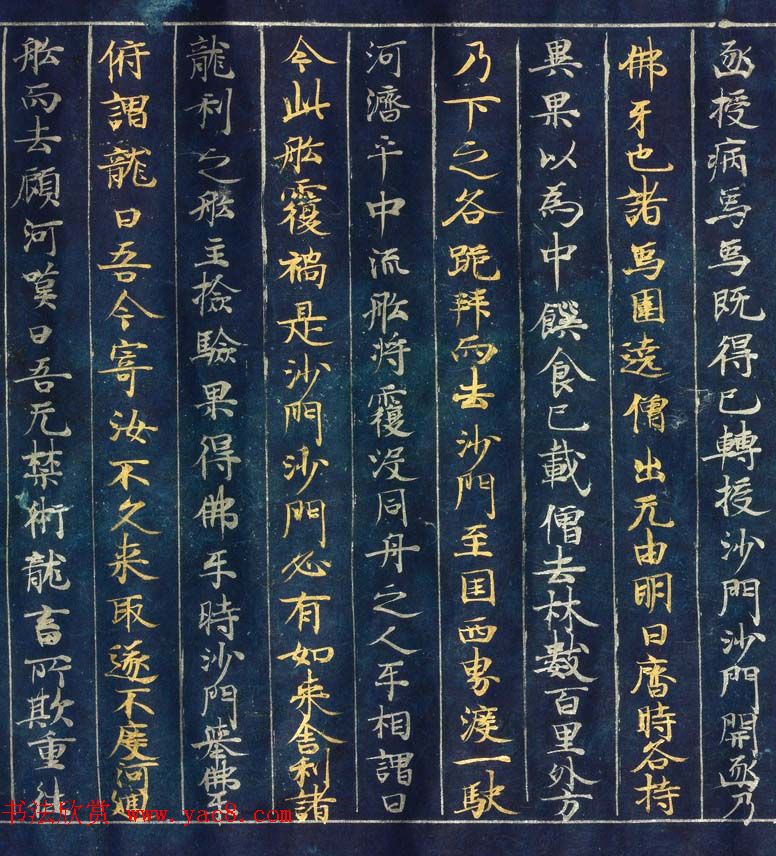 凾授病象象既得已轉授沙門沙門開凾乃
佛牙也諸象圍遶僧出无由明日齋時各持
異果以為中饌食已載僧去林數百里外方
乃下之各跪拜而去沙門至国西界渡一駛
河濟乎中流舩將覆沒同舟之人互相謂曰
今此舩覆禍是沙門沙門必有如来舍利諸
龍利之舩主撿驗果得佛牙時沙門舉佛牙
俯謂龍曰吾今寄汝不久来取遂不度河迴
舩而去顧河嘆曰吾无禁術龍畜所欺重往
书法欣赏 www.yac8.com